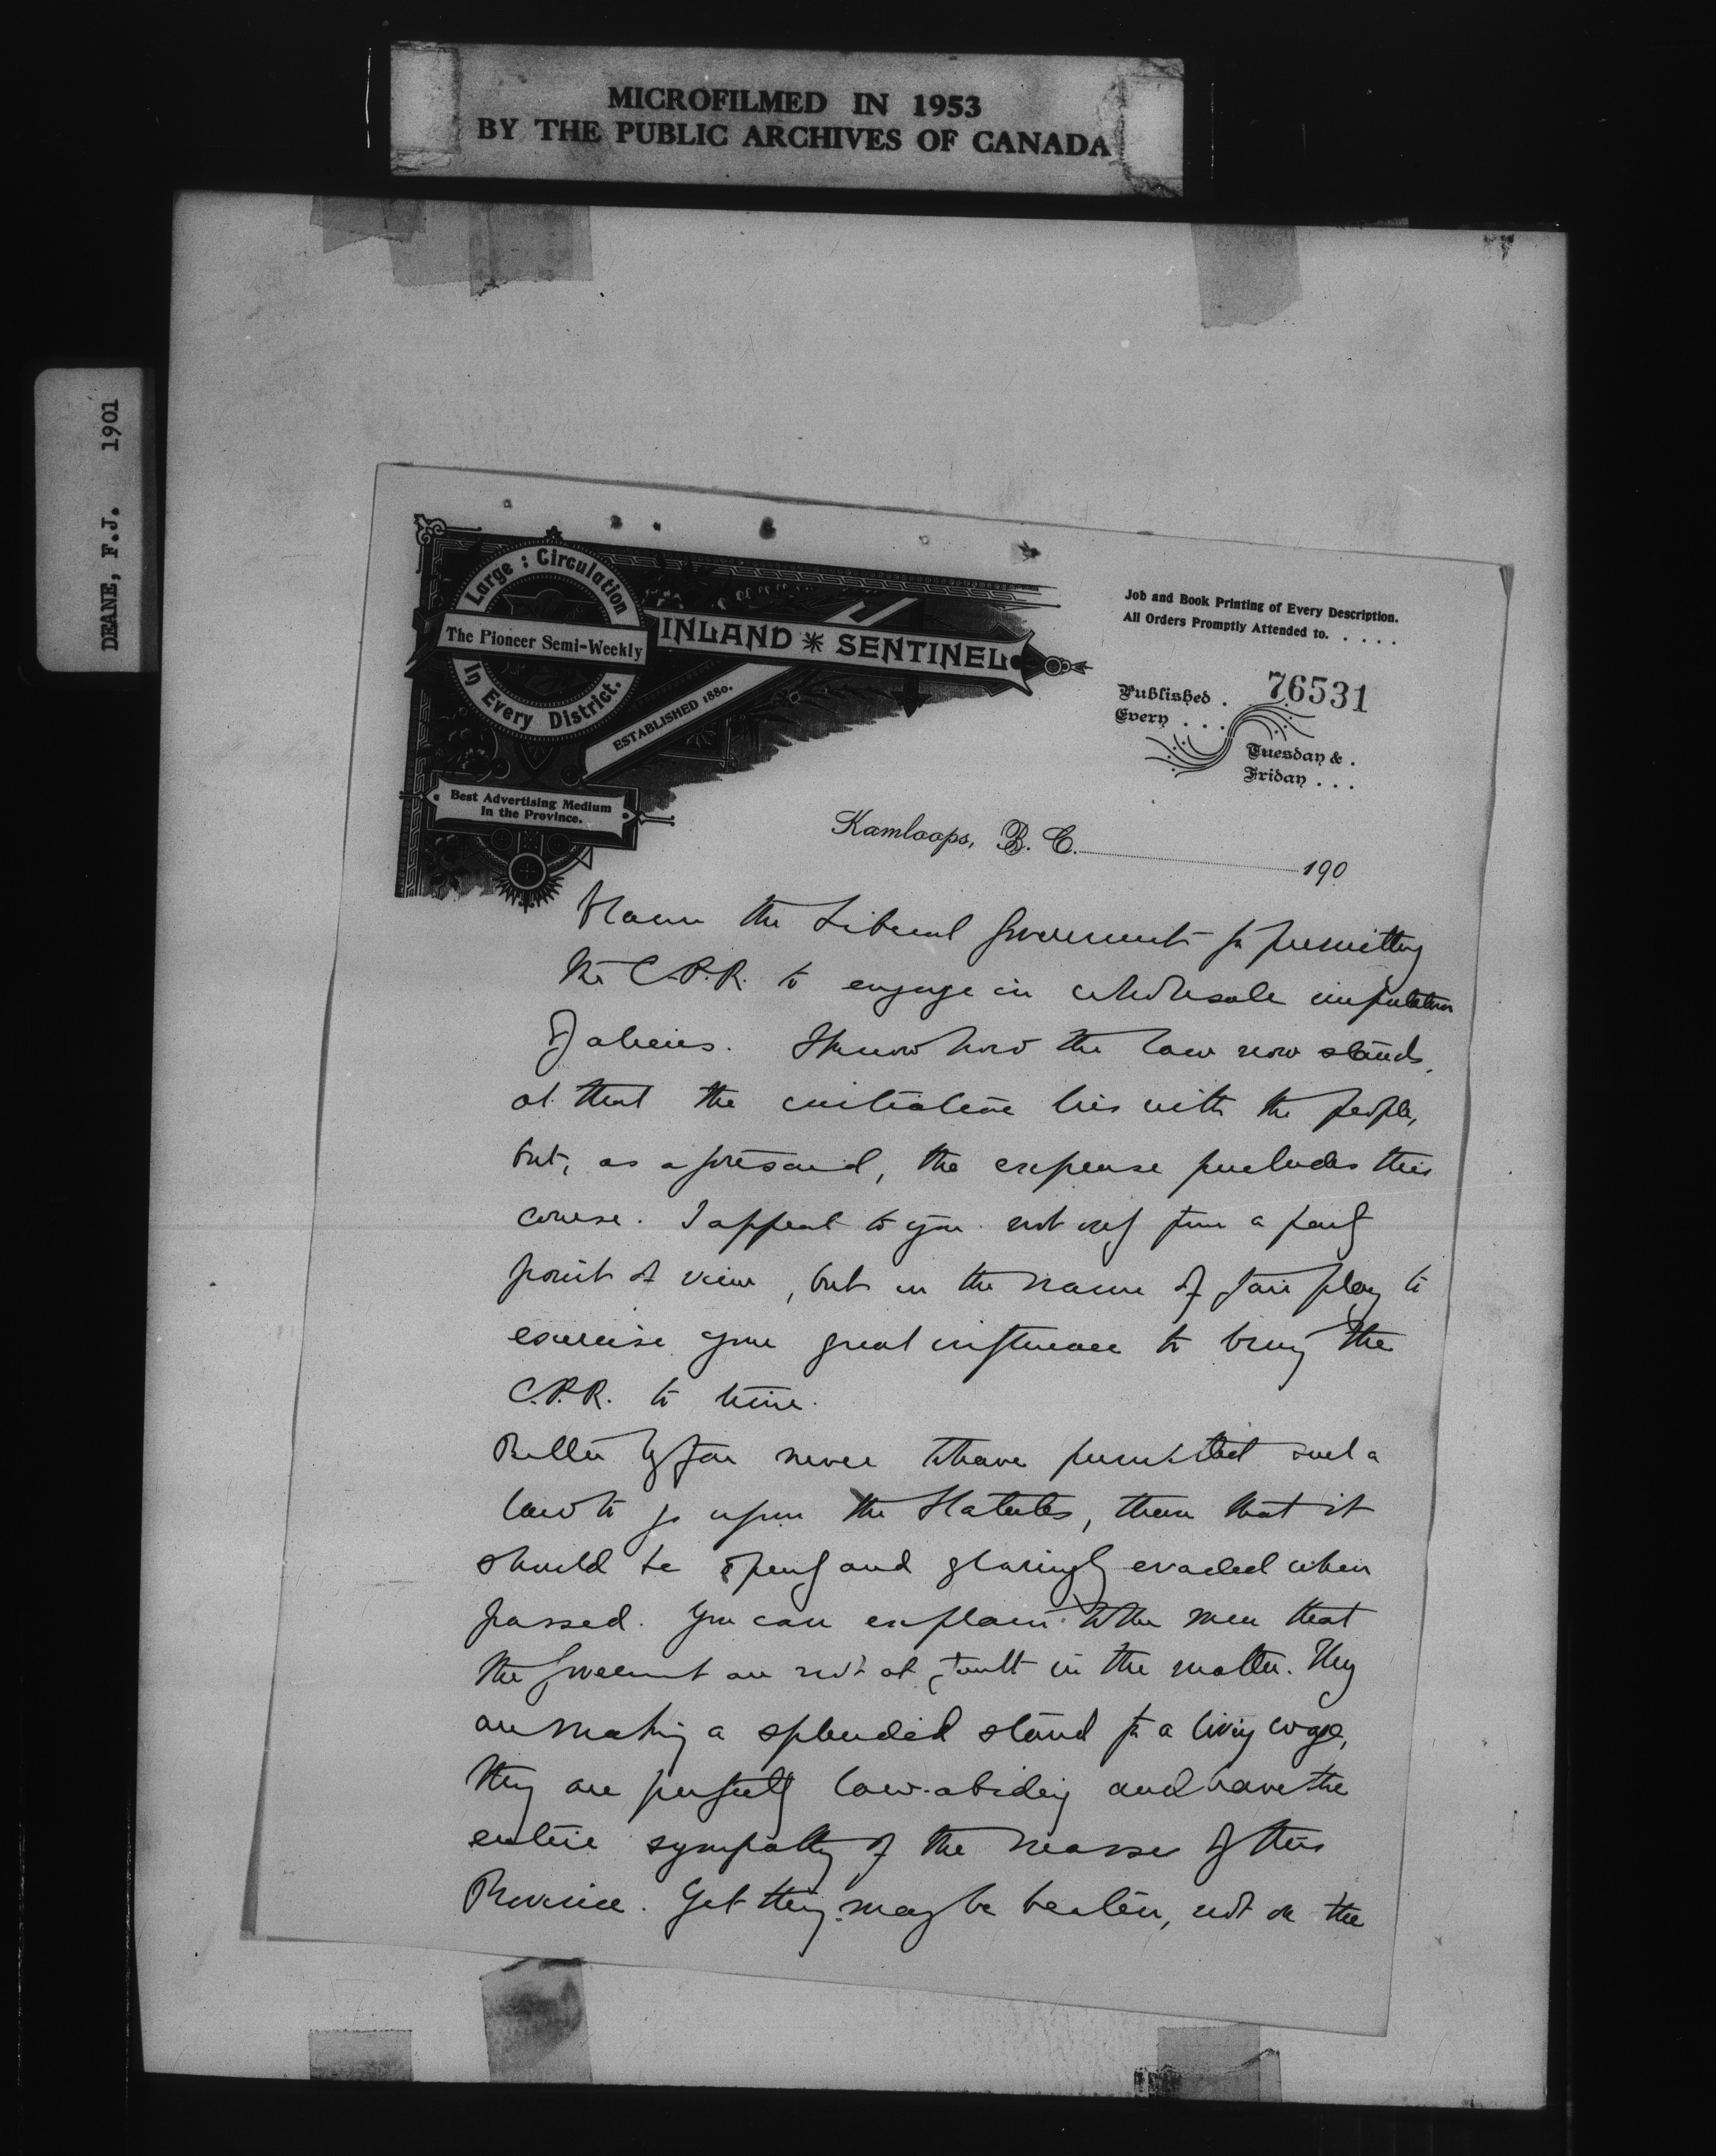 MICROFILMED IN 1953
BY THE PUBLIC ARCHIVES OF CANADA
DEANE, F.J. 1901
Large : Circulation
The Pioneer Semi-Weekly
In Every District.
INLAND SENTINEL
ESTABLISHED 1880.
Best Advertising Medium
in the Province.
Job and Book Printing of Every Description.
All Orders Promptly Attended to. . . . .
76531
Published .
Every . . .
Tuesday & .
Friday . . .
Kamloops, B. C. 190
blame the Liberal Government for permitting
the C.P.R. to engage in wholesale importation
of aliens. I know how the law now stands,
that the initiative lies with the people,
but, as aforesaid, the expense precludes this
course. I appeal to you not only from a party
point of view, but in the name of fair play to
exercise your great influence to bring the
C.P.R. to time.
Better by far never to have permitted such a
law to go upon the Statutes, than that it
should be openly and glaringly evaded when
passed. You can explain to the men that
the Government are not at fault in the matter. They
are making a splendid stand for a living wage,
they are perfectly law-abiding and have the
entire sympathy of the masses of this
Province. Yet they may be beaten, not on the